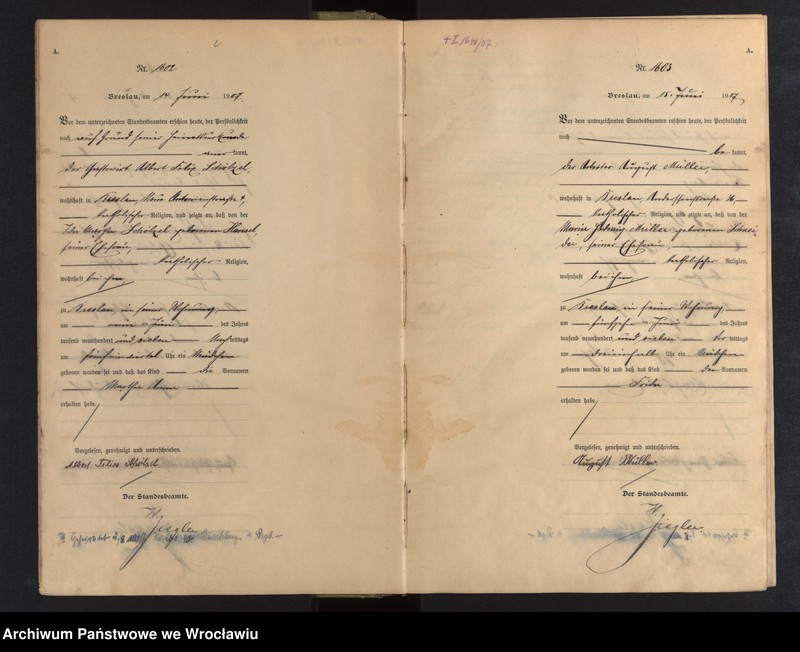 A.
Nr. 1602
Breslau, am 14. Juni 1907.
Vor dem unterzeichneten Standesbeamten erschien heute, der Persönlichkeit
nach auf Grund seiner Heiratsurkunde
kannt,
der Gastwirt Albert Felix
wohnhaft in Breslau, Neue Antonienstraße 9,
katholischer Religion, und zeigte an, daß von der
geborenen
seiner Ehefrau,
katholischer Religion,
wohnhaft bei ihm,
zu Breslau, in seiner Wohnung,
am neunten Juni des Jahres
tausend neunhundert und sieben Nachmittags
um Uhr ein Mädchen
geboren worden sei und daß das Kind die Vornamen
Martha Anna
erhalten habe.
Vorgelesen, genehmigt und unterschrieben.
Albert Felix
Der Standesbeamte.
Ziegler
+ I 1648/07
A.
Nr. 1603
Breslau, am 15. Juni 1907,
Vor dem unterzeichneten Standesbeamten erschien heute, der Persönlichkeit
nach
be kannt,
der Arbeiter August Müller,
wohnhaft in Breslau, Anderssenstraße
katholischer Religion, und zeigte an, daß von der
Maria Hedwig Müller geborenen Schnei
der, seiner Ehefrau,
katholischer Religion,
wohnhaft bei ihm,
zu Breslau, in seiner Wohnung,
am Juni des Jahres
tausend neunhundert und sieben Vormittags
um Uhr ein Mädchen
geboren worden sei und daß das Kind den Vornamen
erhalten habe.
Vorgelesen, genehmigt und unterschrieben.
August Müller
Der Standesbeamte.
Ziegler
Archiwum Państwowe we Wrocławiu